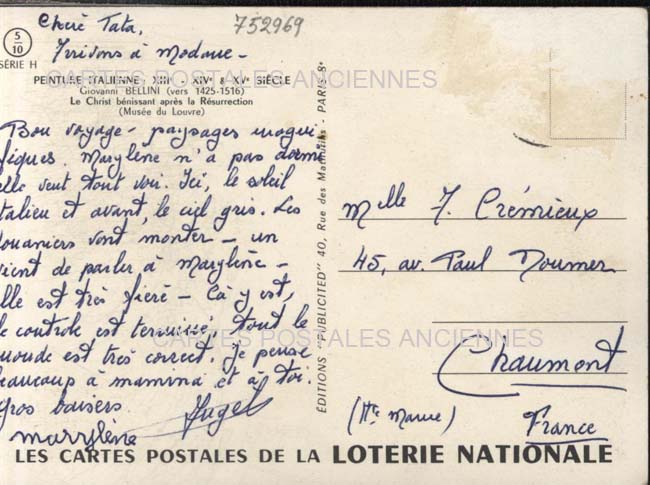 5
10
SÉRIE H
752969
Chère Tata,
Arrivons à Modane -
PEINTURE ITALIENNE XIIIe - XIVe & XVe SIÈCLE
Giovanni BELLINI (vers 1425-1516)
Le Christ bénissant après la Résurrection
(Musée du Louvre)
CARTES POSTALES ANCIENNES
Bon voyage - paysages magni
fiques. Marylène n'a pas dormi
elle veut tout voir. Ici, le soleil
italien et avant, le ciel gris. Les
douaniers vont monter - un
vient de parler à Marylène -
elle est très fière - Cà y est,
le controle est terminé, tout le
monde est très correct. Je pense
beaucoup à mamina et à toi.
gros baisers.
Marylène
ÉDITIONS "PUBLICITED" 40, Rue des Mathurins - PARIS-8e
Melle J. Crémieux
45, av. Paul Doumer
CARTES POSTALES ANCIENNES
Chaumont
(Hte Marne)
France
LES CARTES POSTALES DE LA LOTERIE NATIONALE